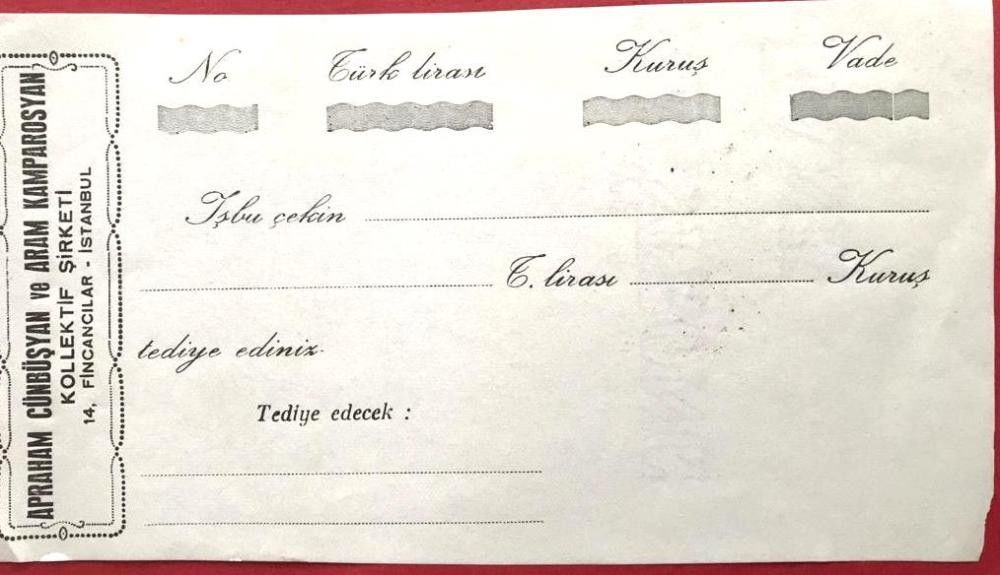 APRAHAM CÜNBÜŞYAN ve ARAM KAMPAROSYAN
KOLLEKTİF ŞİRKETİ
14, FİNCANCILAR - İSTANBUL
No Türk lirası Kuruş Vade
İşbu çekin
T. lirası Kuruş
tediye ediniz.
Tediye edecek :